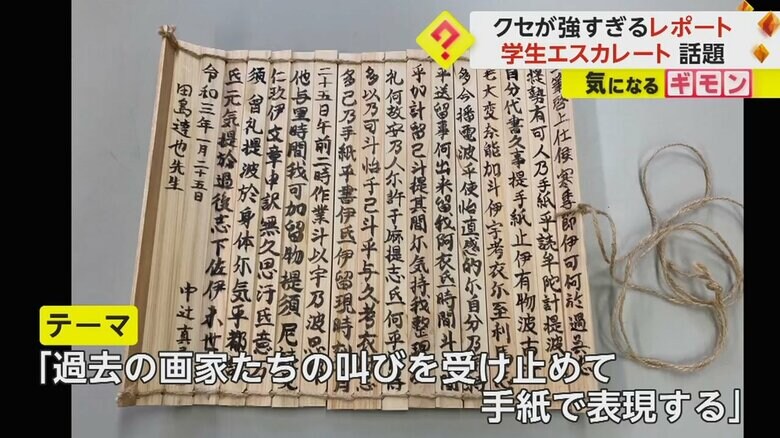 クセが強すぎるレポート
学生エスカレート 話題
気になるギモン
啓上仕候 寒季節伊可何於過
提勢有可人乃手紙乎読牟陀計提波
自分代書久事提手紙止伊有物波古
老大変奈能加斗伊宇考衣尓至利
多今播電波乎使怡直感的尓自分乃
乎送留事何出来留 阿衣氐時間斗
乎加計留己斗提其間尓気持我整理
礼何故安乃人尓許于麻提志氐何乎得
多以乃可斗怡于己斗乎与久考衣
多己乃手紙乎書伊氐伊留現時
二十五日午前二時作業斗以宇乃波思
他与里時間我可加留物提須
仁玖伊文章申訳無久思汙氐意
須 留礼提波於身体尓気乎都
氐元気提於過後志下佐伊
令和三年一月二十五日
田島達也先生
中辻真
テーマ
「過去の画家たちの叫びを受け止めて
手紙で表現する」